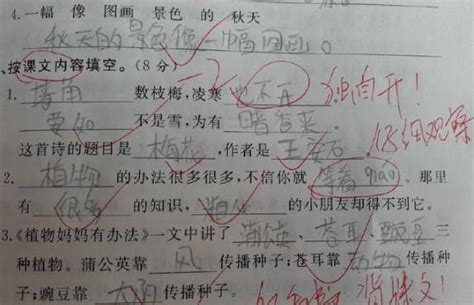 4.一幅 像 图画 景色 的 秋天
秋天的景色像一幅图画。
、按课文内容填空。(8分)
1.墙角 数枝梅,凌寒 也不开 独自开!
要知 不是雪,为有 暗香来。
这首诗的题目是 梅花 ,作者是 王安石。 仔细观察
2. 植物 的办法很多很多,不信你就 等着qiáo 。那里
有 很多 的知识, 粗心 的小朋友却得不到它。
3.《植物妈妈有办法》一文中讲了 蒲公英 、 苍耳 、 豌豆 三
种植物。蒲公英靠 风 传播种子;苍耳靠 动物 传播种
子;豌豆靠 太阳 传播种子。 读课文!